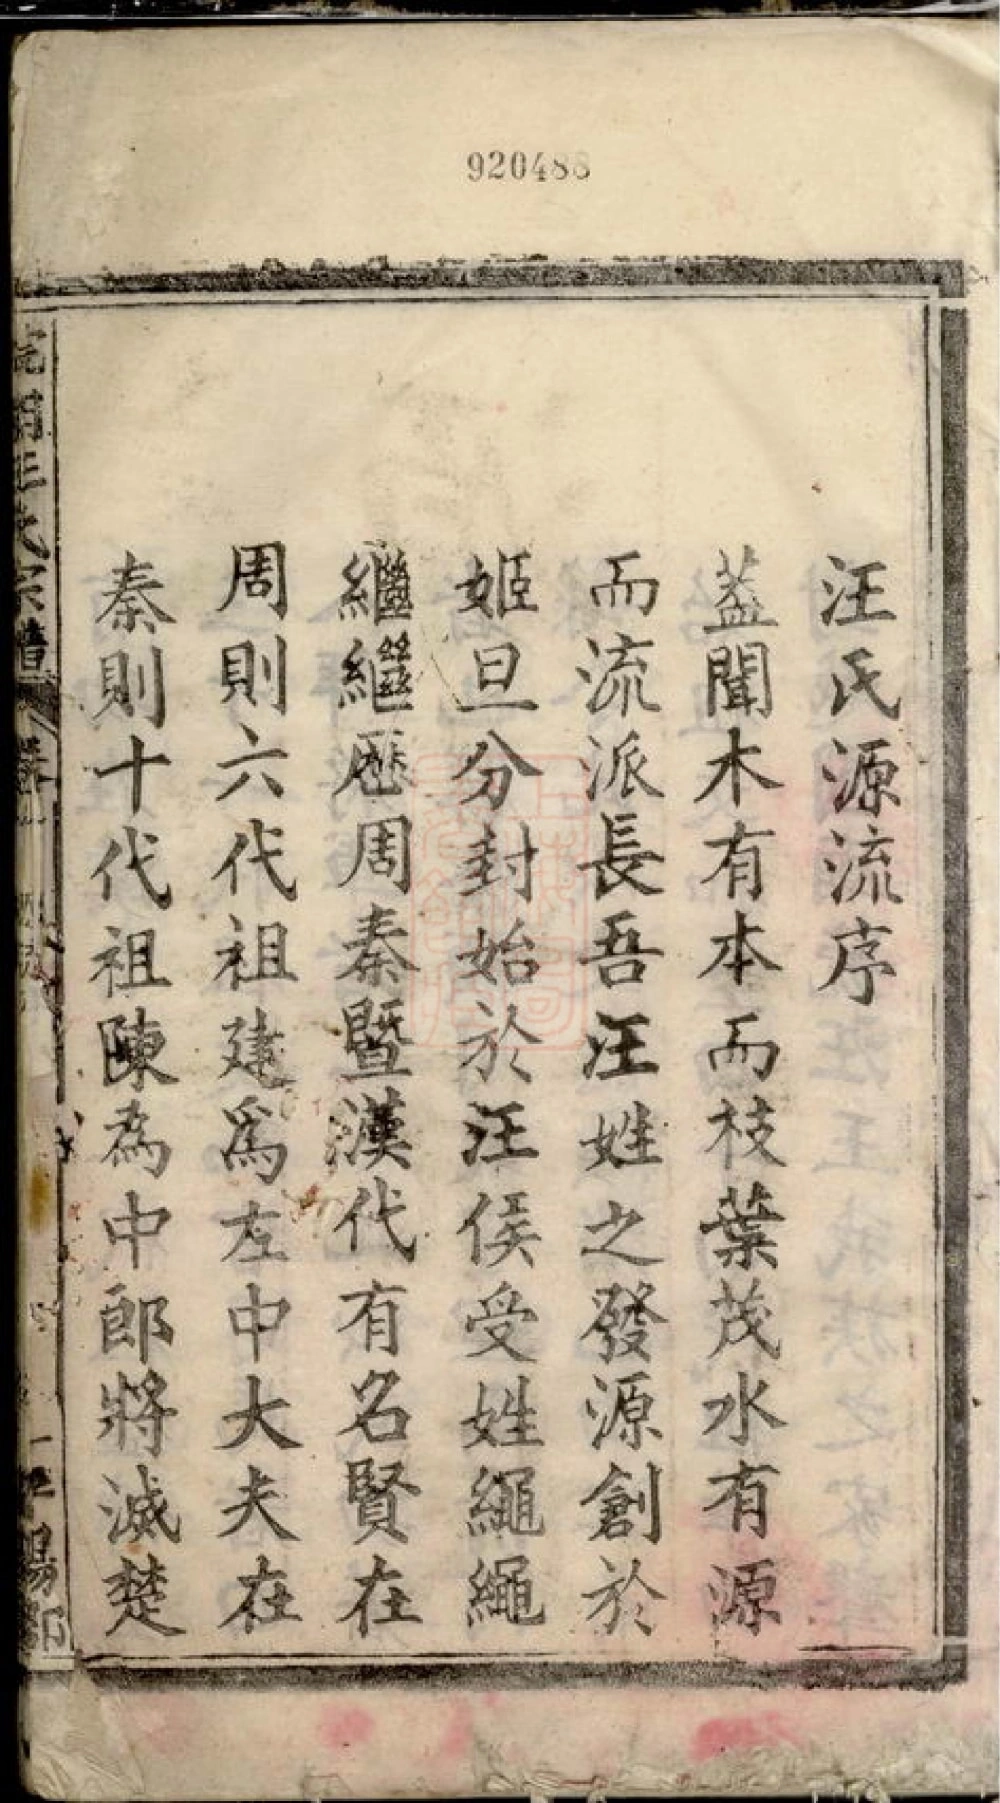 920488
汪氏源流序
葢聞木有本而枝葉茂水有源
而流派長吾汪姓之發源創於
姬旦分封始於汪侯受姓繩繩
繼繼歷周秦暨漢代有名賢在
周則六代祖建爲左中大夫在
秦則十代祖陳為中郎將滅楚
氏宗譜